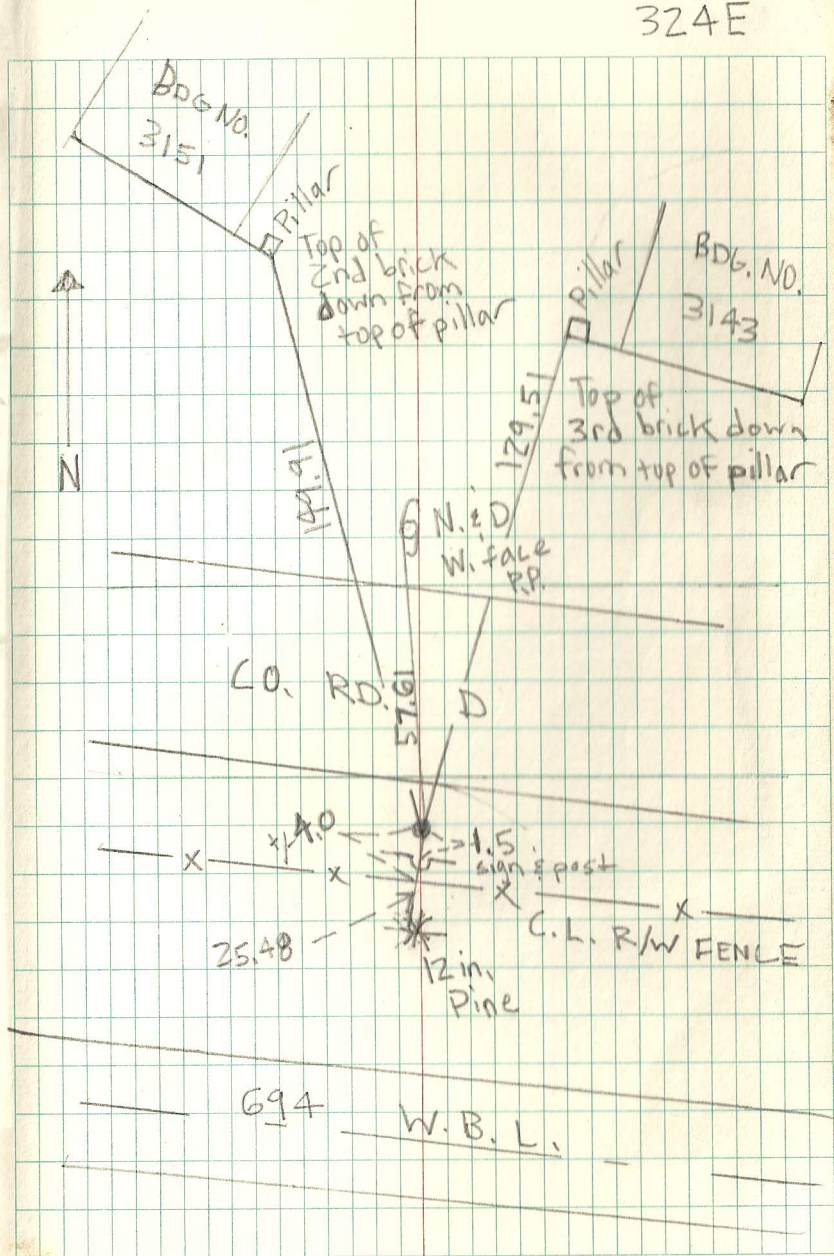 324E
BDG NO.
3151
Pillar
Top of
2nd brick
down from
top of pillar
Pillar
BDG. NO.
3143
Top of
3rd brick down
from top of pillar
129.51
149.91
N
N. & D
W. face
P.P.
CO. RD. D
57.61
4.0
1.5
sign & post
x x x x
C.L. R/W FENCE
25.48
12 in.
Pine
694 W.B.L.